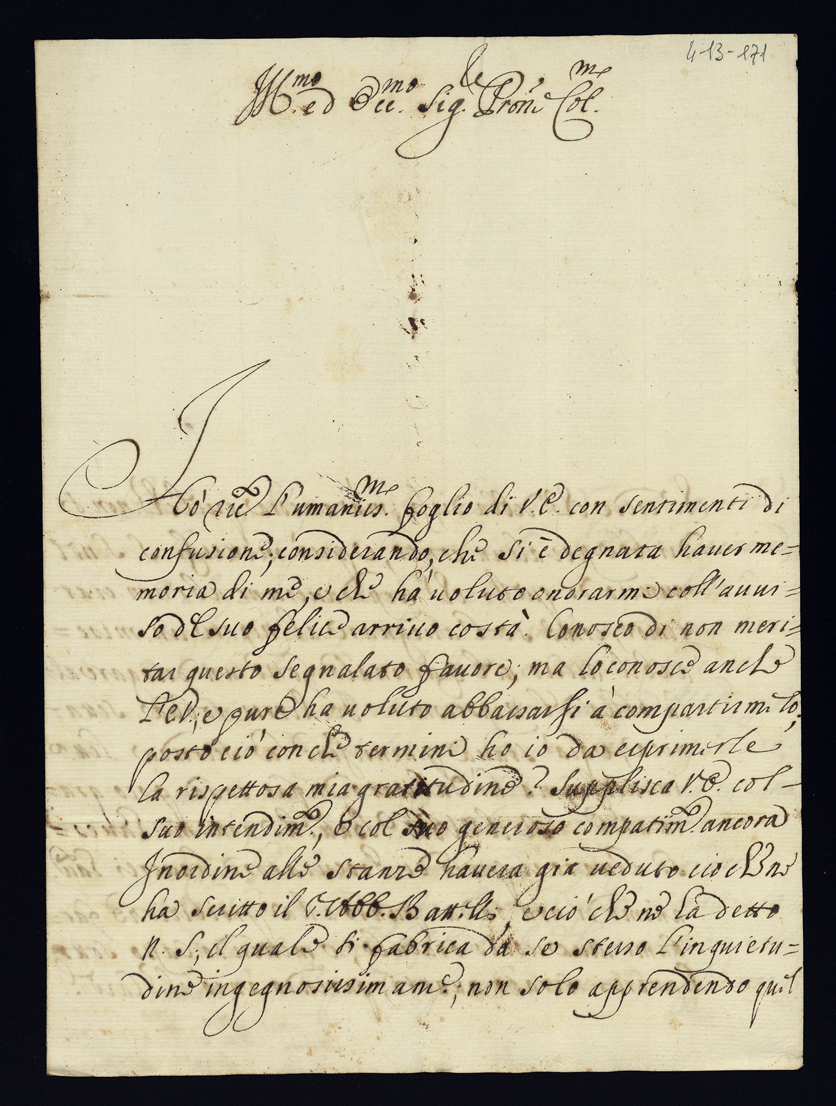 4-13-171
Ill.mo ed Ecc.mo Sig.le Pron̄e Col.mo
Hò ric.to l'umaniss.mo foglio di V.E. con sentimenti di
confusione, considerando, che si è degnata haver me=
moria di me, e che hà voluto onorarme coll'auui=
so del suo felice arriuo costà. Conosco di non meri=
tar questo segnalato fauore; ma lo conosce anche
l'E.V., e pure ha voluto abbassarsi à compartirmelo,
posto ciò con che termine ho io da esprimerle
la rispettosa mia gratitudine? Supplisca V.E. col
suo intendim.to, e col suo generoso compatim.to ancora
In ordine alle stanze havera già veduto cio che ne
ha scritto il S. Abb. e ciò che ne ha detto
N. S., il quale si fabrica da se stesso l'inquietu=
dine ingegnosissimam.e; non solo apprendendo quel